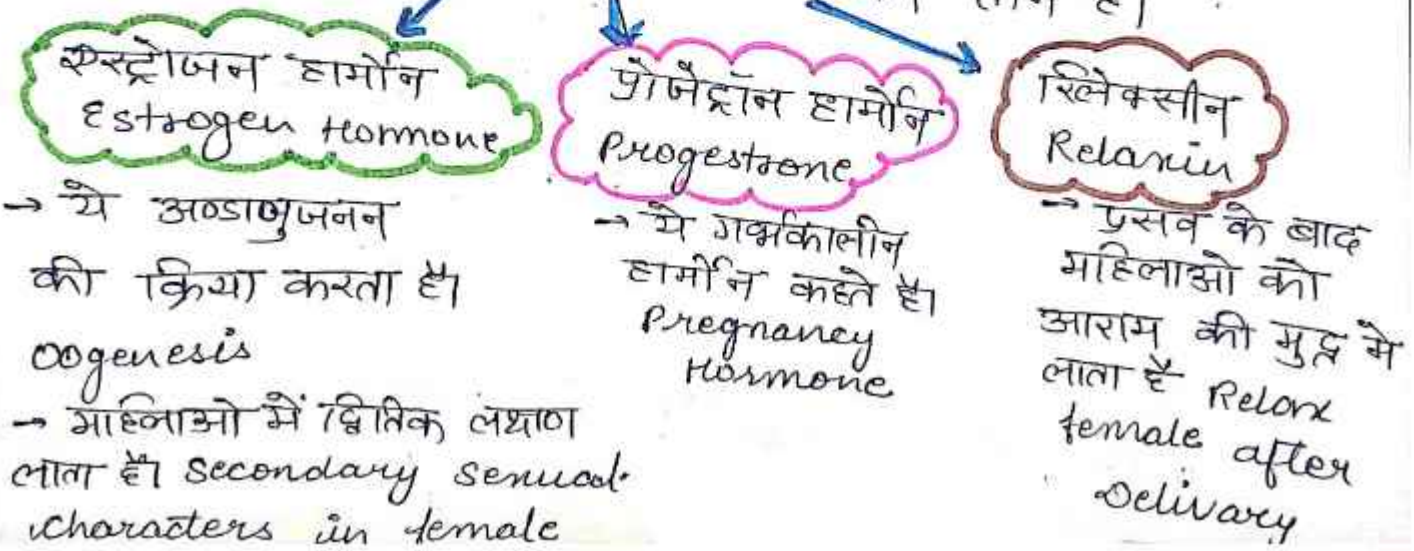 एस्ट्रोजन हार्मोन
Estrogen Hormone
→ ये अण्डाणुजनन
की क्रिया करता है।
oogenesis
→ माहिलाओ में द्वितिक लक्षाण
लाता है। Secondary sexual
characters in female
प्रोजेट्रॉन हार्मोन
Progestrone
→ ये गर्भकालीन
हार्मोन कहते है।
Pregnancy
Hormone
रिलेक्सीन
Relaxin
→ प्रसव के बाद
माहिलाओ को
आराम की मुद्र मे
लाता है Relax
female after
Delivary